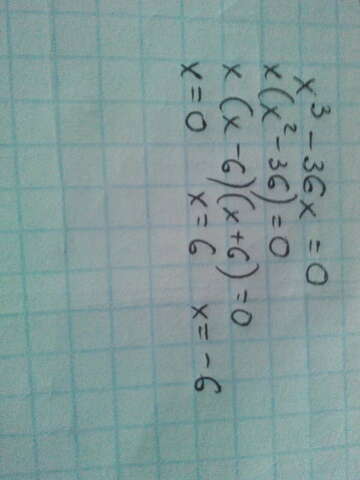 x³ - 36x = 0
x(x² - 36) = 0
x (x - 6)(x + 6) = 0
x = 0 x = 6 x = - 6